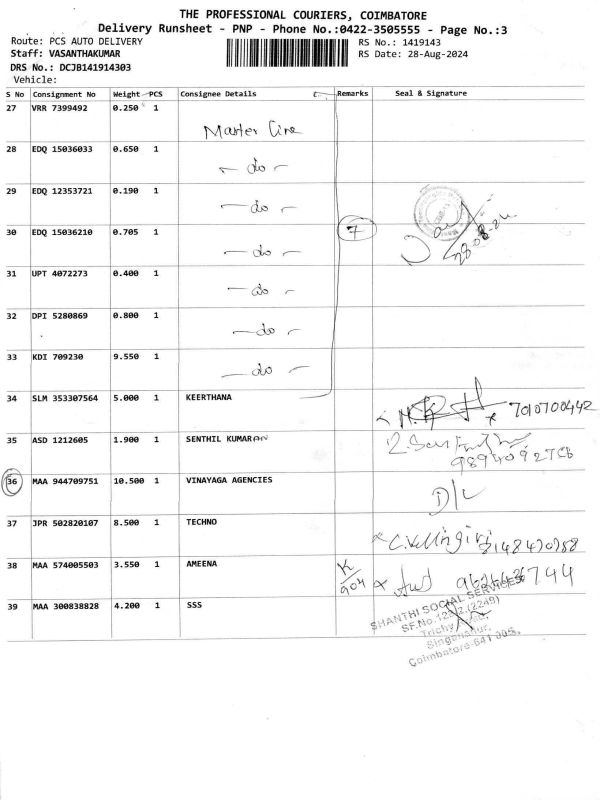 THE PROFESSIONAL COURIERS, COIMBATORE
Delivery Runsheet - PNP - Phone No.:0422-3505555 - Page No.:3
Route: PCS AUTO DELIVERY RS No.: 1419143
Staff: VASANTHAKUMAR RS Date: 28-Aug-2024
DRS No.: DCJB141914303
Vehicle:
S No Consignment No Weight PCS Consignee Details Remarks Seal & Signature
27 VRR 7399492 0.250 1
Master Line
28 EDQ 15036033 0.650 1
- do -
29 EDQ 12353721 0.190 1
- do -
30 EDQ 15036210 0.705 1 7
- do - 28-08-24
31 UPT 4072273 0.400 1
- do -
32 DPI 5280869 0.800 1
- do -
33 KDI 709230 9.550 1
- do -
34 SLM 353307564 5.000 1 KEERTHANA
7010700442
35 ASD 1212605 1.900 1 SENTHIL KUMARAN
36 MAA 944709751 10.500 1 VINAYAGA AGENCIES
D/L
37 JPR 502820107 8.500 1 TECHNO
38 MAA 574005503 3.550 1 AMEENA
K/904
39 MAA 300838828 4.200 1 SSS
SHANTHI SOCIAL SERVICES
Trichy
Singanallur,
Coimbatore-641 005.